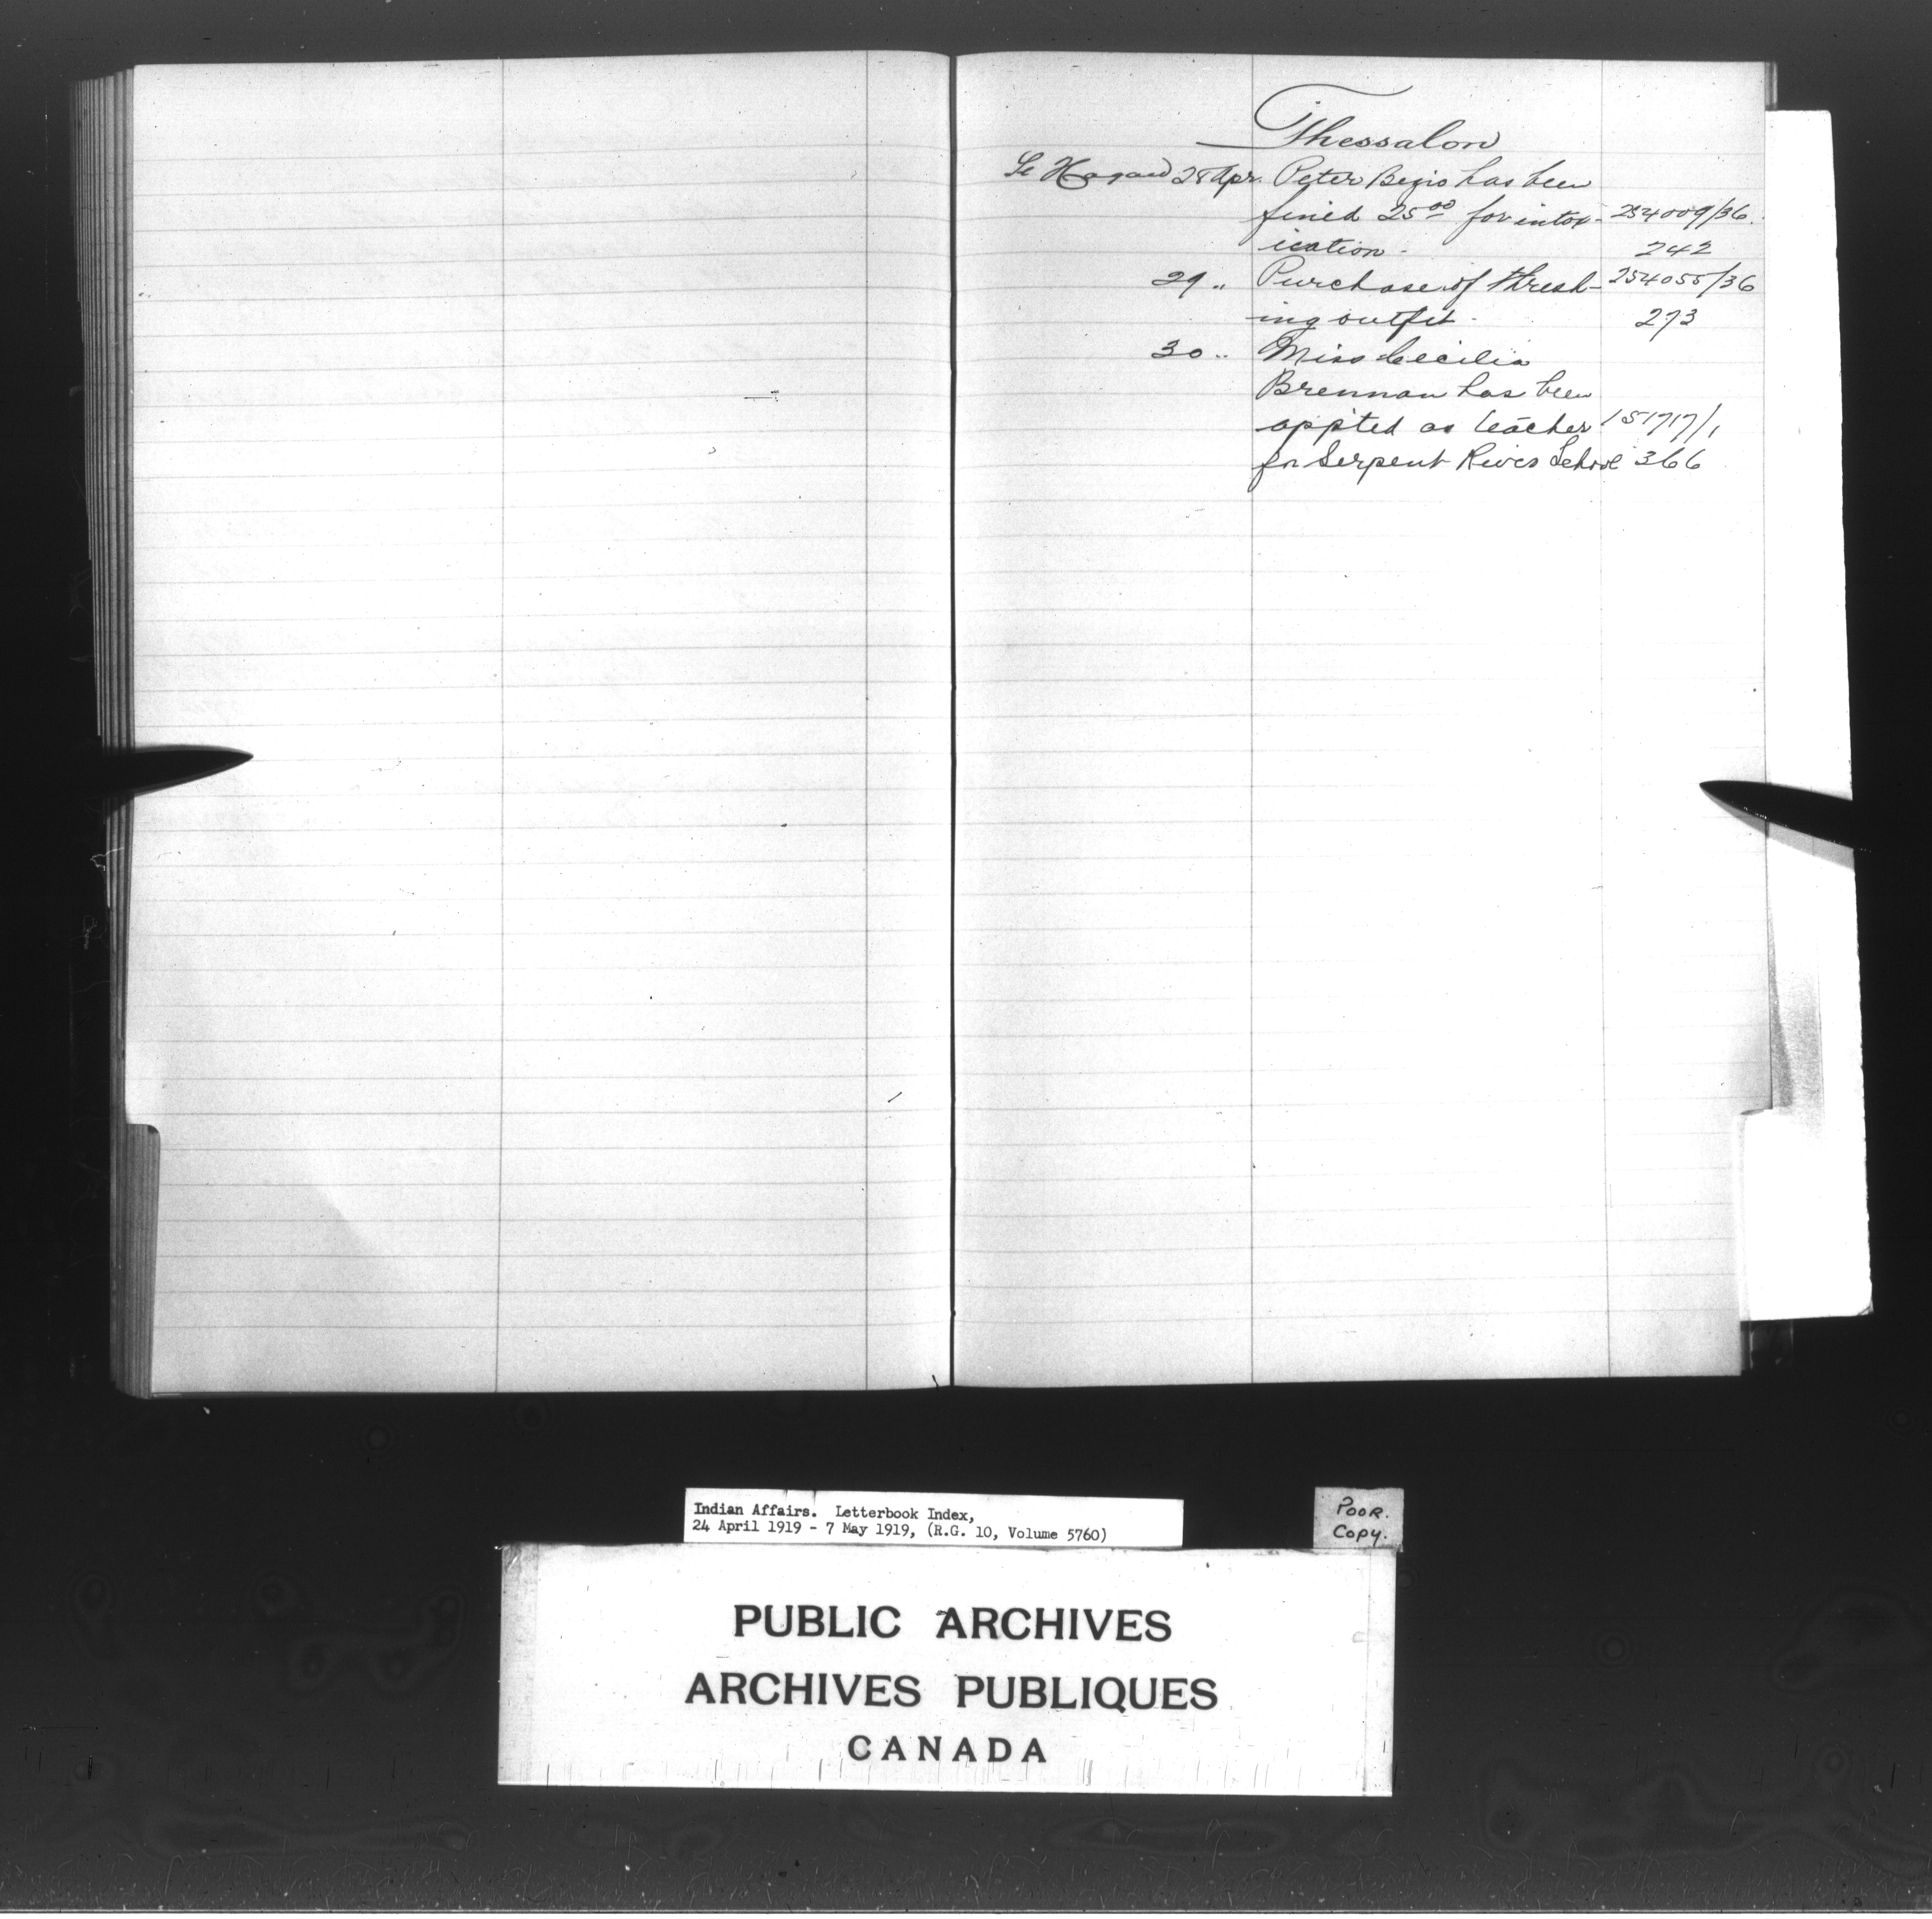 Thessalon
28 Apr. Peter has been
fined 25 00 for intox- 254009/36
ication - 242
29 " Purchase of thresh- 254055/36
ing outfit - 273
30 " Miss Cecilia
Brennan has been
app'ted as teacher 151717/1
for Serpent River School 366
Indian Affairs. Letterbook Index,
24 April 1919 - 7 May 1919, (R.G. 10, Volume 5760)
POOR.
COPY.
PUBLIC ARCHIVES
ARCHIVES PUBLIQUES
CANADA